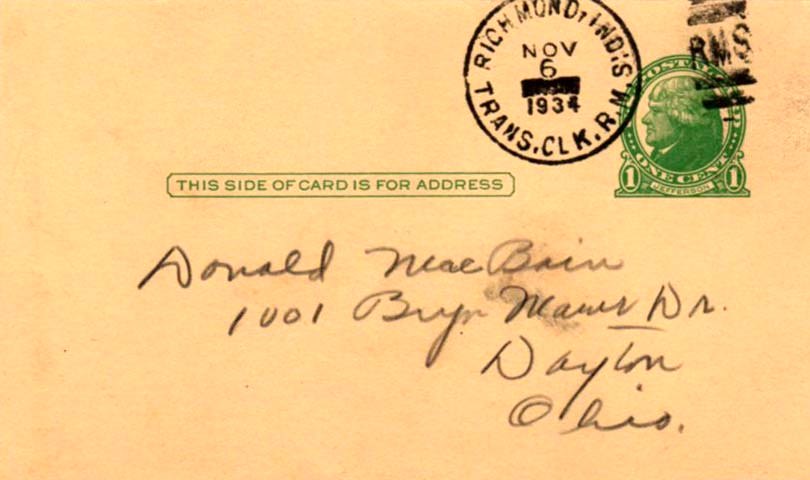 RICHMOND, IND'S
NOV
6
1934
TRANS. CLK. R.M.
RMS
POSTAL
ONE CENT
1 JEFFERSON 1
THIS SIDE OF CARD IS FOR ADDRESS
Donald MacBain
1001 Bryn Mawr Dr.
Dayton
Ohio.